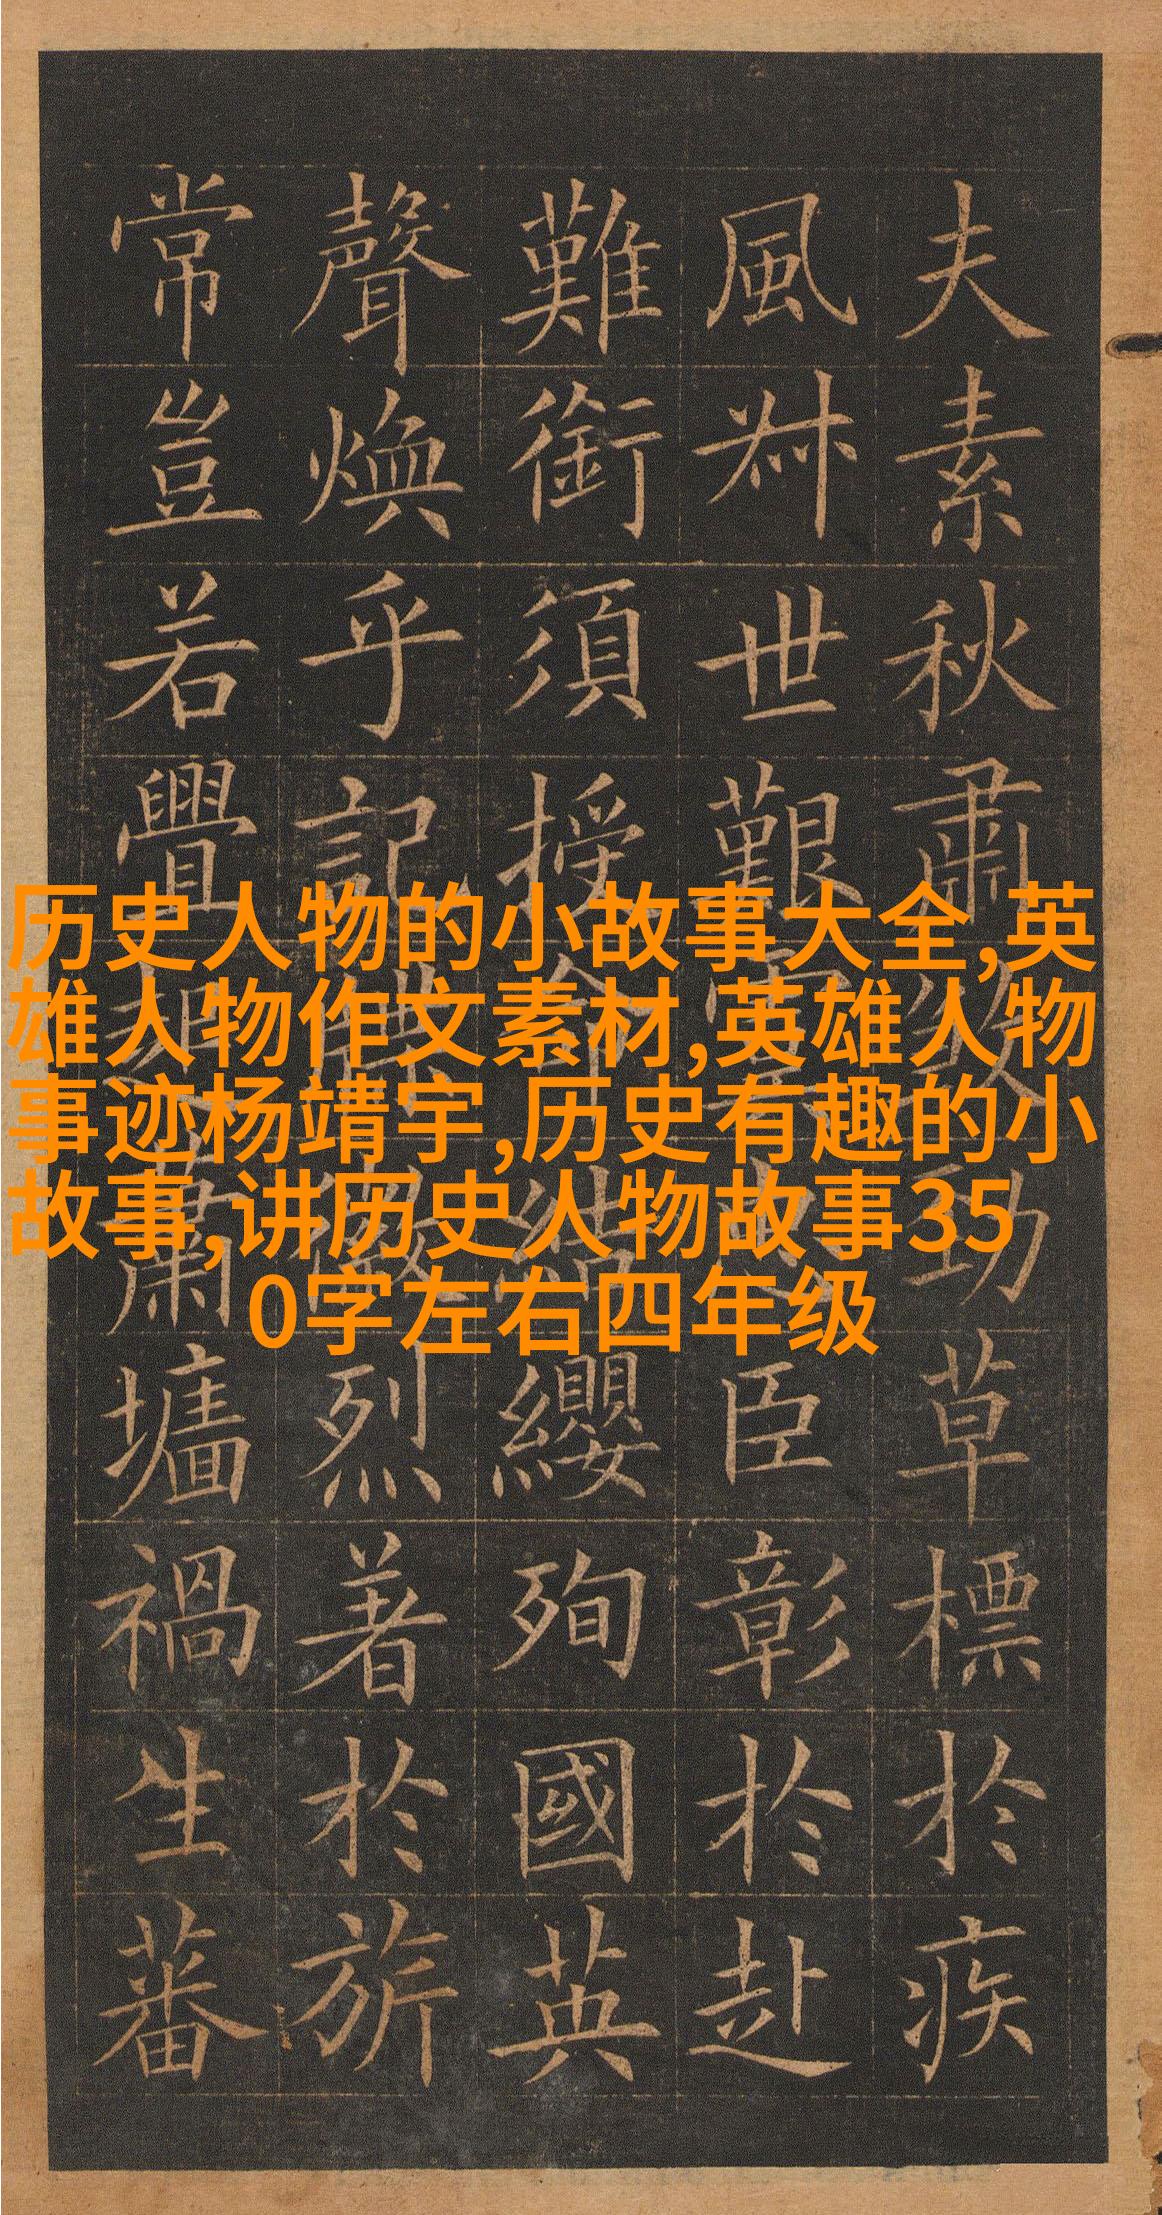 夫素秋肅勁草標於疾
風叔世艱臣彰於赴
難銜須授結纓殉國英
聲煥乎記烈著於旂
常豈若舋蕭墻禍生蕃
历史人物的小故事大全,英
雄人物作文素材,英雄人物
事迹杨靖宇,历史有趣的小
故事,讲历史人物故事35
0字左右四年级